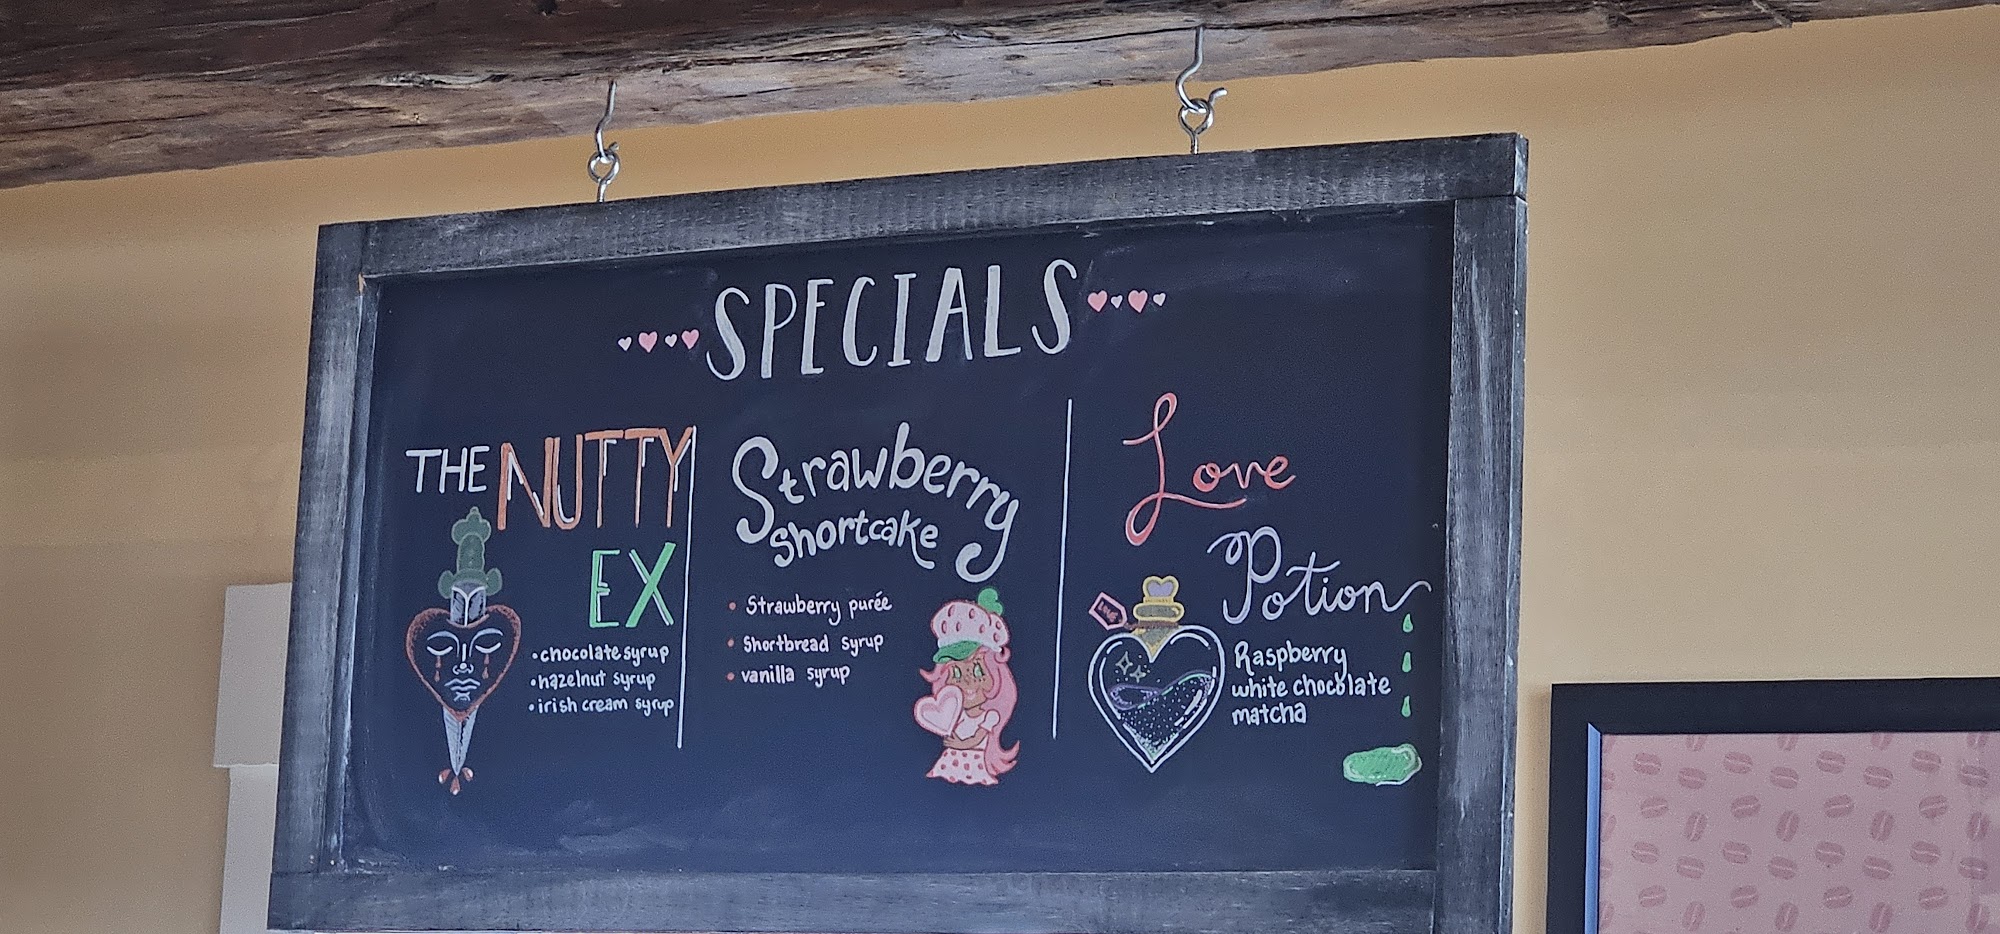 SPECIALS
THE NUTTY
EX
• chocolate syrup
• hazelnut syrup
• irish cream syrup
Strawberry
shortcake
• Strawberry purée
• Shortbread syrup
• vanilla syrup
Love
Potion
Raspberry
white chocolate
matcha